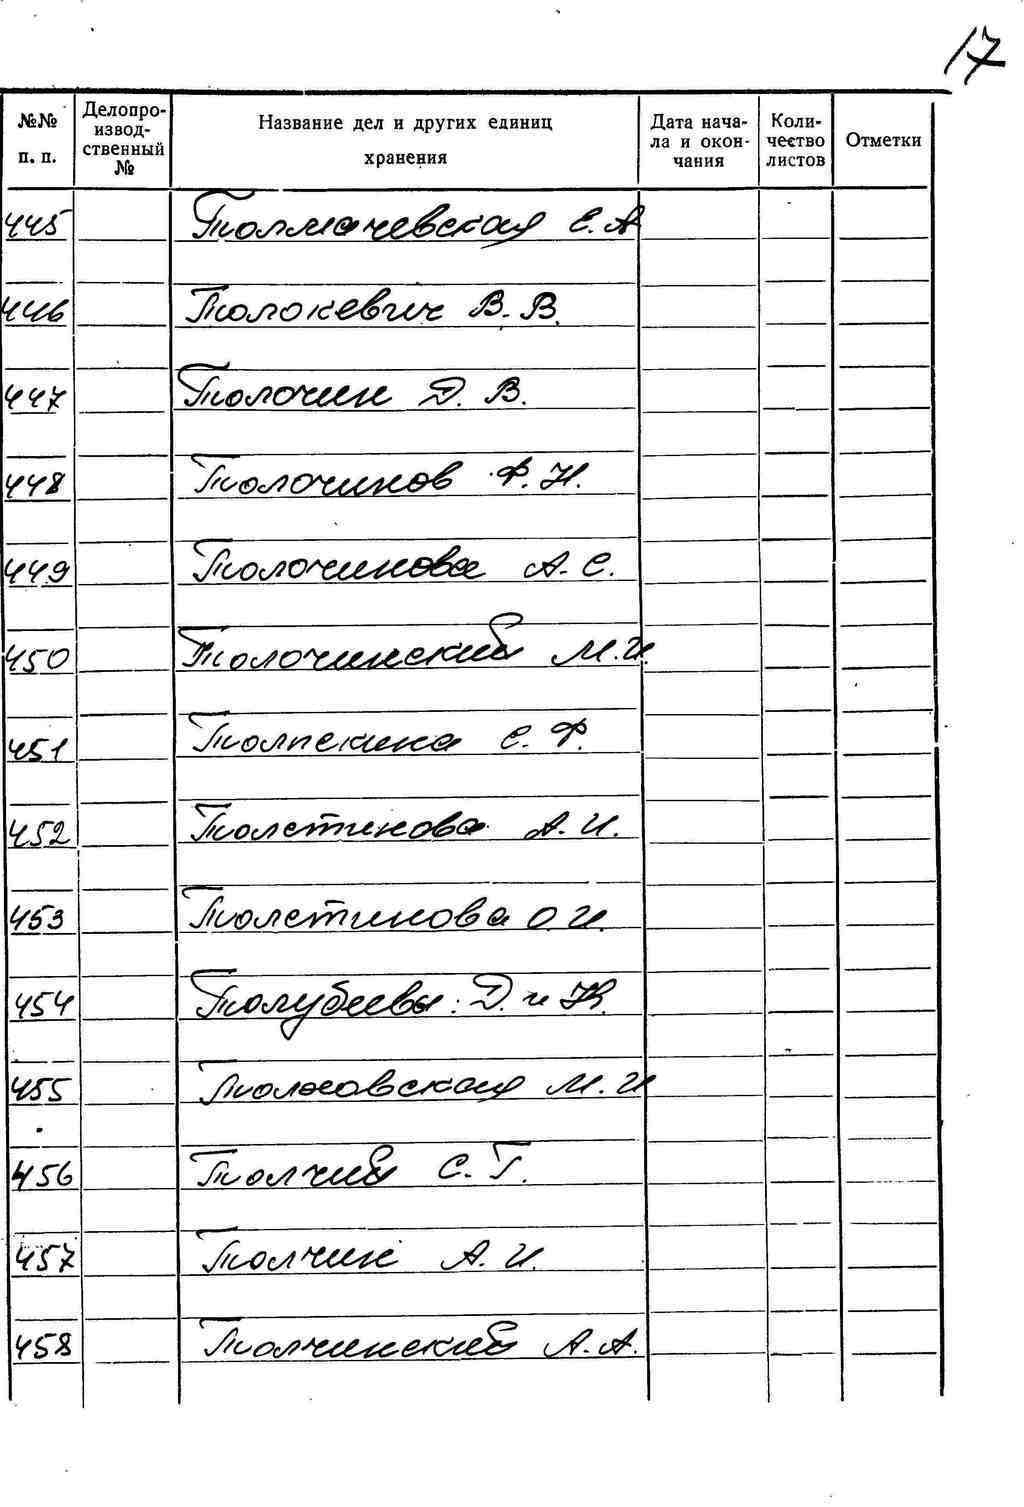 17
№№ п. п.
Делопроизводственный №
Название дел и других единиц хранения
Дата начала и окончания
Количество листов
Отметки
445 Толмачевская Е. А
446 Толокевич В. В.
447 Толочин Д. В.
448 Толочинов Ф. Н.
449 Толочинова А. С.
450 Толочинский М. И.
451 Толпекина С. Ф.
452 Толстикова А. И.
453 Толстикова О. И.
454 Толубеевы: Д. и Н.
455 Толховская М. И
456 Толчий С. Г.
457 Толчин А. И.
458 Толчинский А. А.